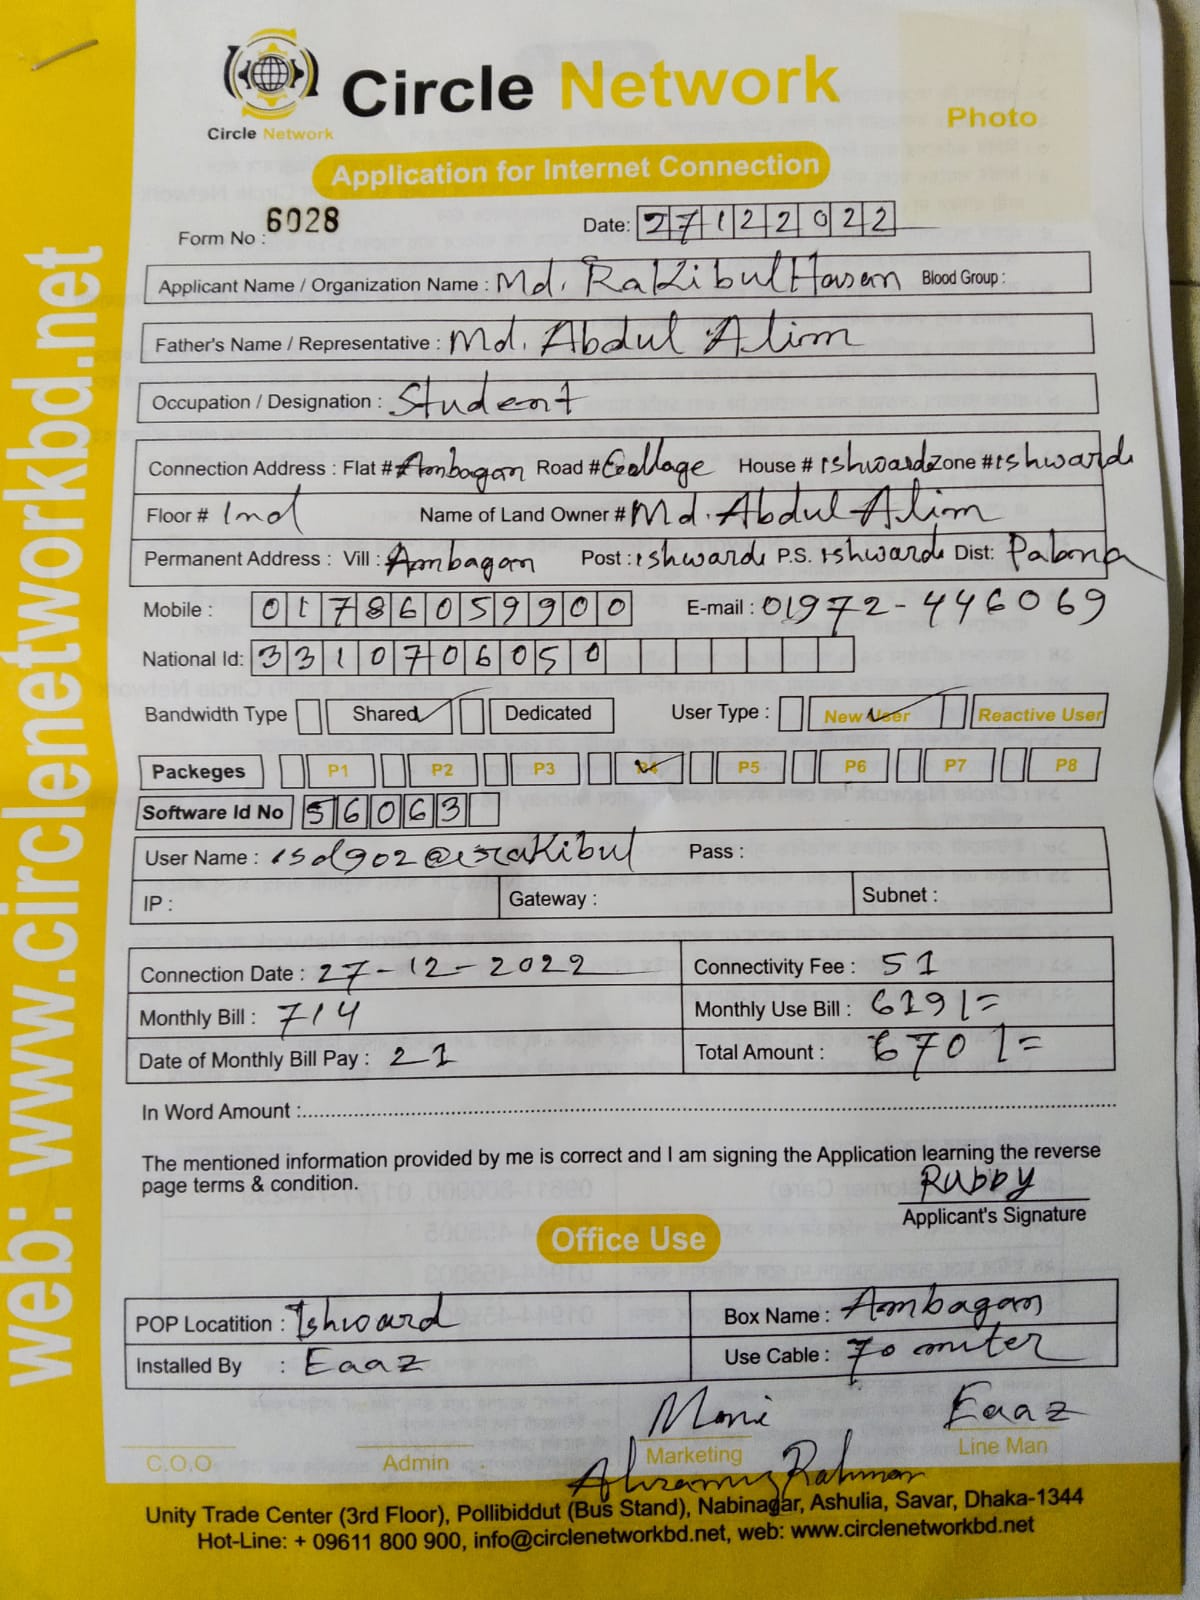 web: www.circlenetworkbd.net
Circle Network
Circle Network
Photo
Application for Internet Connection
Form No : 6028
Date: 27122022
Applicant Name / Organization Name : Md. Rakibul Hasan Blood Group :
Father's Name / Representative : Md. Abdul Alim
Occupation / Designation : Student
Connection Address : Flat # Ambagan Road # Collage House # ishwardi Zone # ishwardi
Floor # 2nd Name of Land Owner # Md. Abdul Alim
Permanent Address : Vill : Ambagan Post : ishwardi P.S. ishwardi Dist: Pabna
Mobile : 01786059900 E-mail : 01972-446069
National Id: 3310706050
Bandwidth Type Shared Dedicated User Type : New User Reactive User
Packeges P1 P2 P3 P4 P5 P6 P7 P8
Software Id No 56063
User Name : isd902@israkibul Pass :
IP : Gateway : Subnet :
Connection Date : 27-12-2022 Connectivity Fee : 51
Monthly Bill : 714 Monthly Use Bill : 619/=
Date of Monthly Bill Pay : 21 Total Amount : 670/=
In Word Amount :
The mentioned information provided by me is correct and I am signing the Application learning the reverse
page terms & condition.
Rubby
Applicant's Signature
Office Use
POP Locatition : Ishward Box Name : Ambagan
Installed By : Eaaz Use Cable : 70 miter
Eaaz
C.O.O Admin Marketing Line Man
Rahman
Unity Trade Center (3rd Floor), Pollibiddut (Bus Stand), Nabinagar, Ashulia, Savar, Dhaka-1344
Hot-Line: + 09611 800 900, info@circlenetworkbd.net, web: www.circlenetworkbd.net